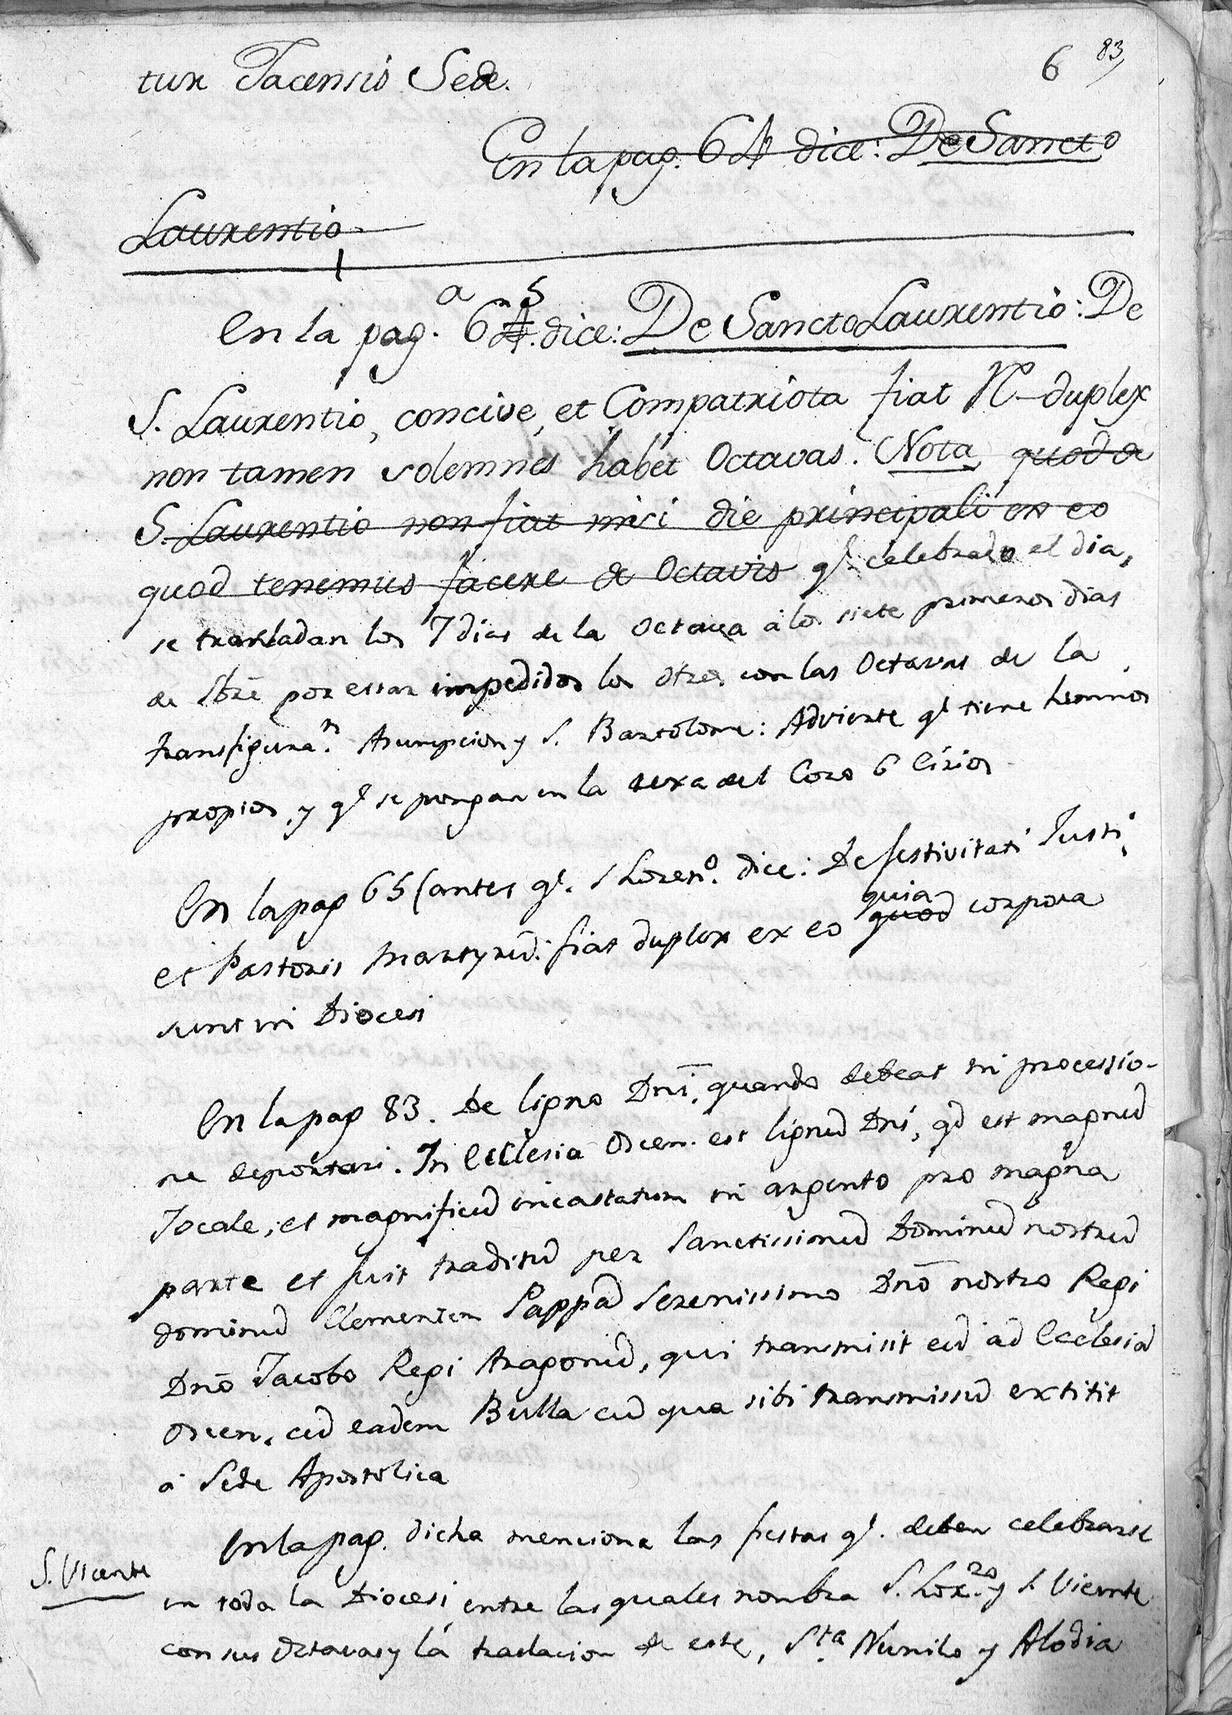 6 83
tur Jacensis Sede.
En la pag. 64 dice: De Sancto
Laurentio.
En la pag.a 65. dice: De Sancto Laurentio: De
S. Laurentio, concive, et Compatriota fiat IX duplex
non tamen solemnes habet Octavas. Nota, quod de
S. Laurentio non fiat nisi die principali ex eo
quod tenemus facere de Octavis q.e celebrado el dia,
se trasladan los 7 dias de la Octava a los siete primeros dias
de 7bre por estar impedidos los otros con las Octavas de la
transfigura.n Asumpcion y S. Bartolome: Advierte q.e tiene himnos
propios, y q.e se pongan en la rexa del Coro 6 Cirios
En la pag 65 (antes q.e S Loren.o dice: De festivitati Justi
quia
et Pastoris Martyrũ: fiat duplex ex eo quod corpora
sunt in Diocesi
En la pag 83. De ligno Dni, quando debeat in processio-
ne deportari. In Ecclesia Oscen. est lignũ Dni, qd est magnũ
Jocale, et magnificũ incastatum in argento pro magna
parte et fuit traditũ per Sanctissimũ Dominũ nostrũ
dominũ Clementem Pappã Serenissimo Dnõ nostro Regi
Dnõ Jacobo Regi Aragonũ, qui transmisit eũ ad Ecclesiã
Oscen. cũ eadem Bulla cũ qua sibi transmissũ extitit
a Sede Apostolica
En la pag. dicha menciona las fiestas q.e deben celebrarse
S. Vicente
en toda la Diocesi entre las quales nombra S. Lor.zo y S. Vicente
con sus Octavas y la traslacion de este, S.ta Nunilo y Alodia